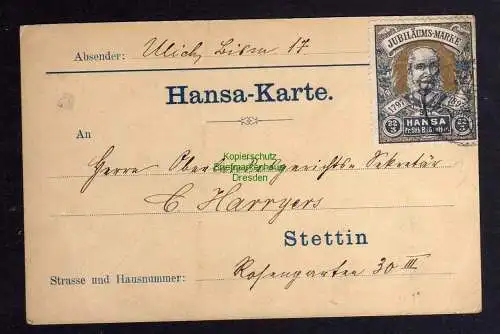 Absender: Ulich, Bism 17
JUBILÄUMS-MARKE
1797 1897
HANSA
Hansa-Karte.
An
Kopierschutz
Briefmarkenhaus
Dresden
Herrn Oberlandesgerichts-Sekretär
C Harryers
Stettin
Strasse und Hausnummer: Rosengarten 30 III